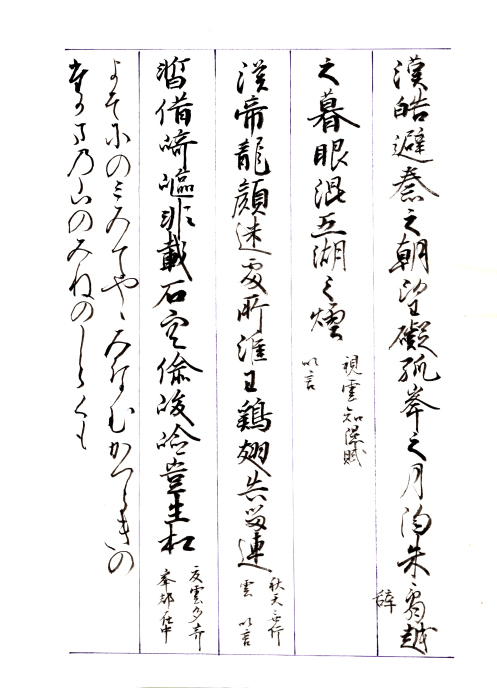 漢皓避秦之朝望礙孤峯之月陶朱越
辞
之暮眼混五湖之煙
視雲知隠賦
以言
漢帝龍顔迷處所淮王鶏翅失留連
秋天無行
雲 以言
暫借崎嶇非載石空偸峻嶮豈生松
夏雲多奇
峯 都在中
よそにのみみてやゝみなむかつらきの
たかまの山のみねのしらくも